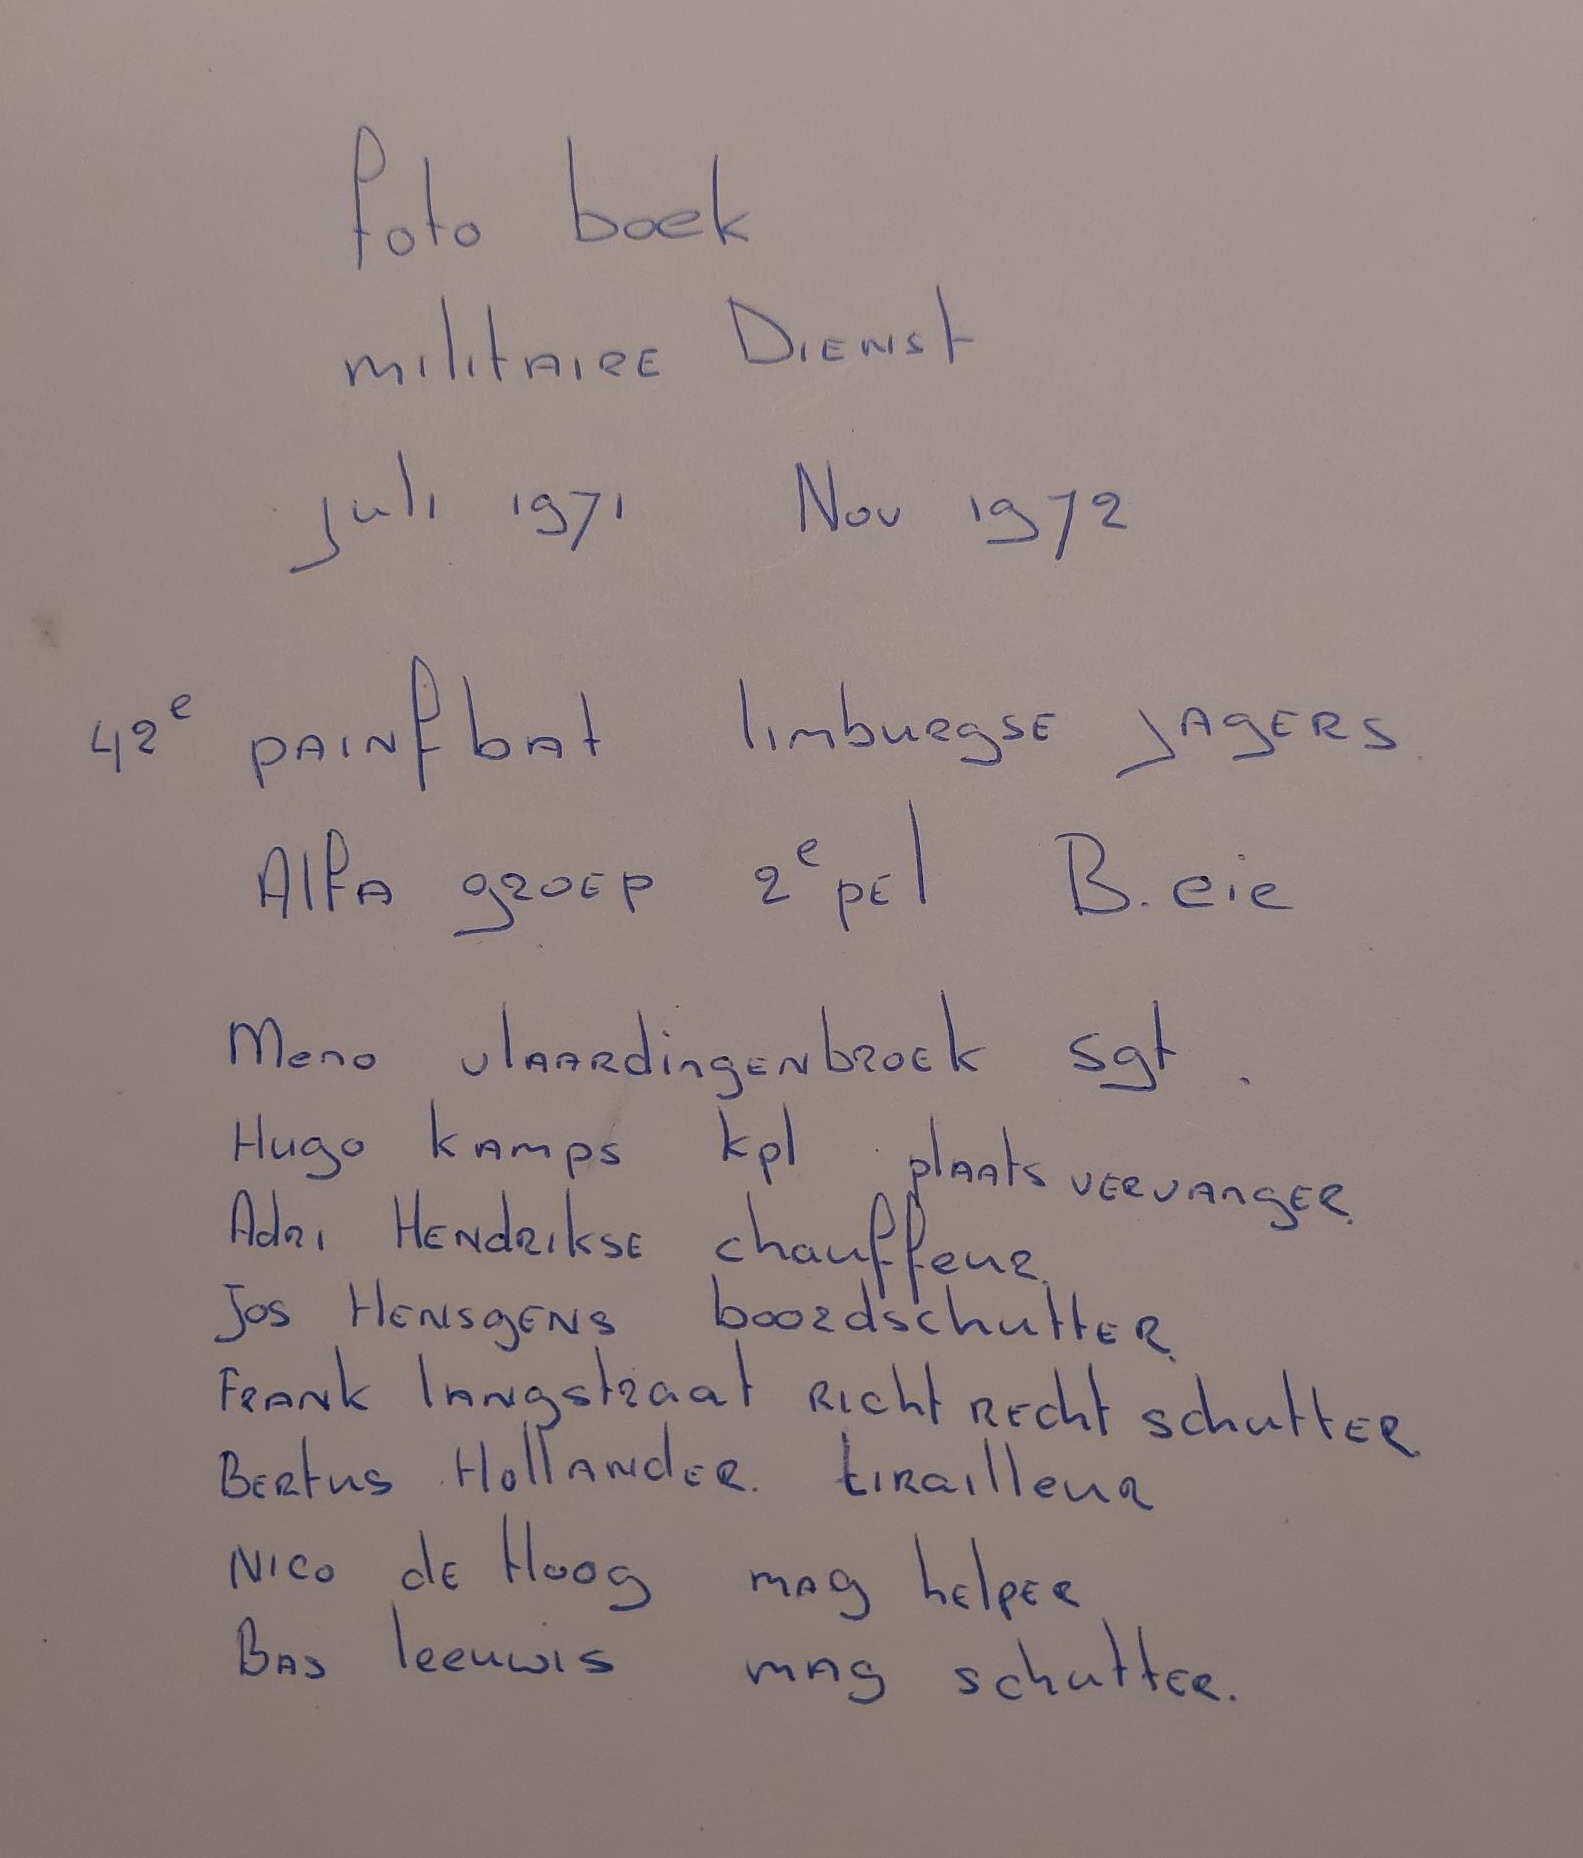 foto boek
militaire Dienst
juli 1971 Nov 1972
42e painfbat limburgse jagers
Alfa groep 2e pel B. cie
Meno vlaardingenbroek sgt.
Hugo kamps kpl plaats vervanger
Adri Hendrikse chauffeur
Jos Hensgens boordschutter
Frank langstraat Richt Recht schutter
Bertus Hollander. tirailleur
Nico de Hoog mag helper
Bas leeuwis mag schutter.